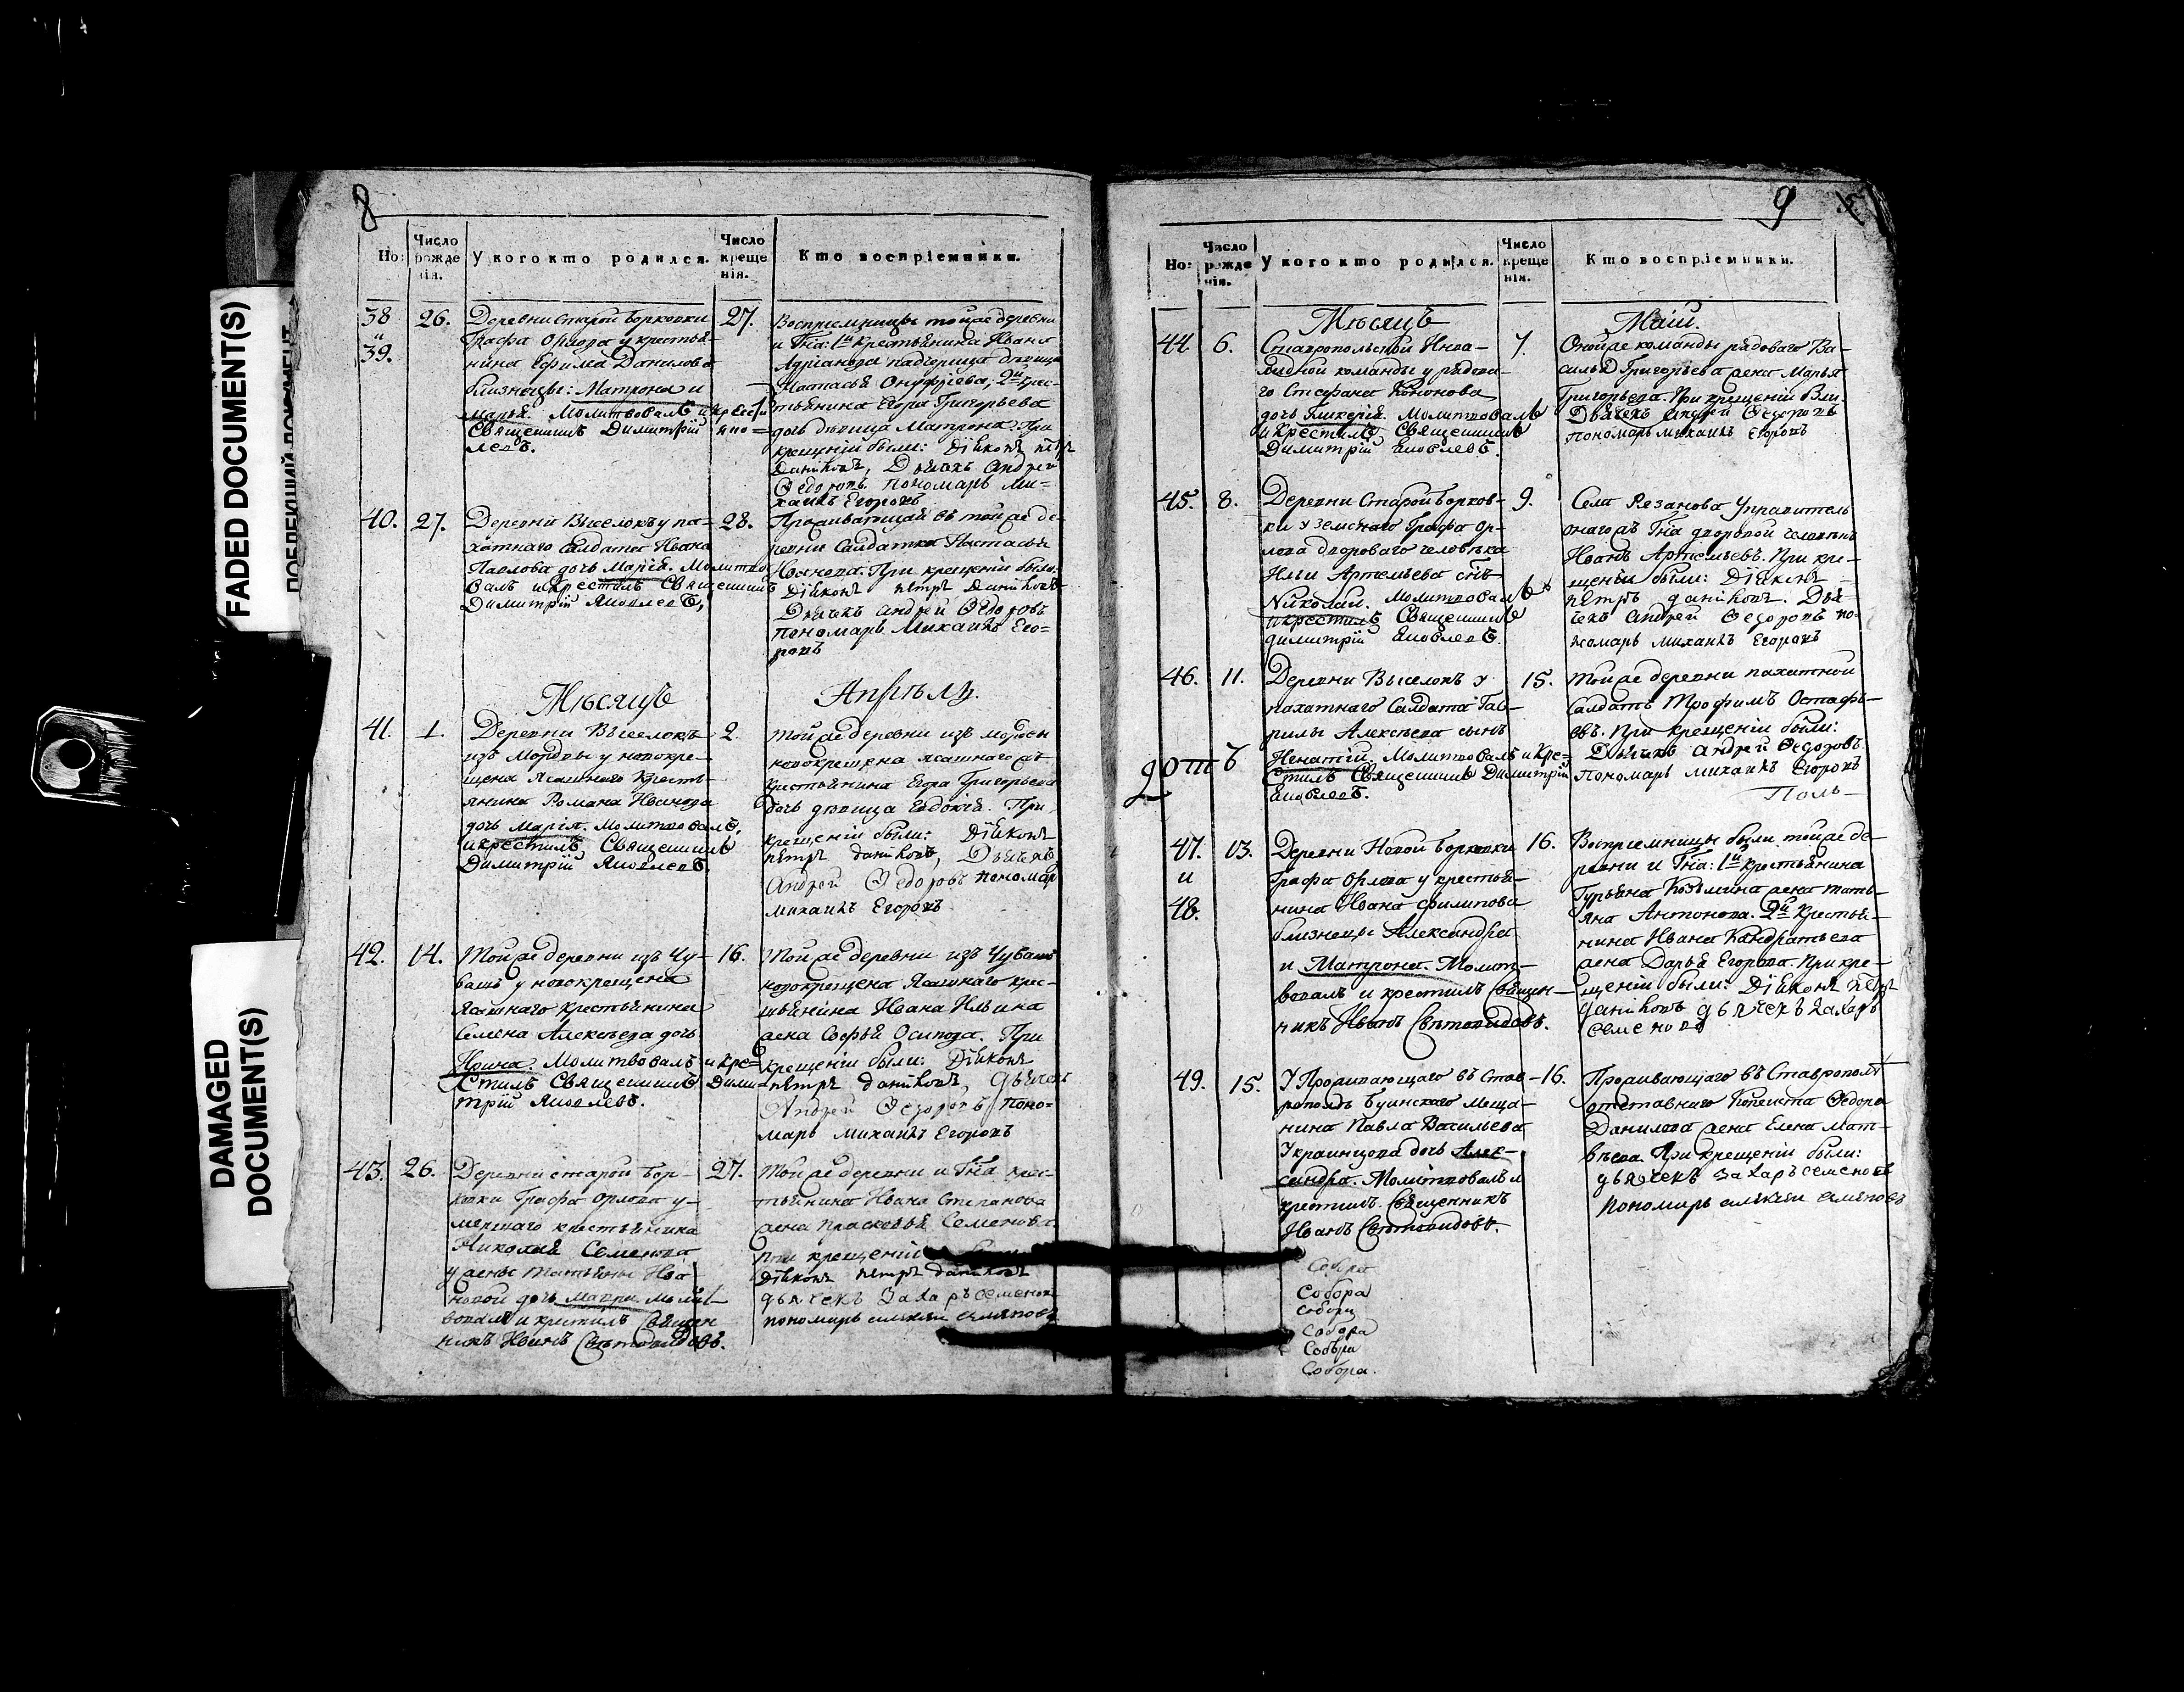 FADED DOCUMENT(S)
DAMAGED
DOCUMENT(S)
8
Но:
Число
рожде
нія.
У кого кто родился.
Число
креще
нія.
Кто воспріемники.
38
и
39.
26.
Деревни Старой Борковки
Графа Орлова у крестья-
нина Ефима Данилова
близнецы: Матрона и
Марья. Молитвовалъ и крестилъ
Священникъ Димитрій Яко=
влевъ.
27.
Воспріемницы тойже деревни
и Гна: 1й крестьянина Ивана
Адріанова падчерица дѣвица
Настасья Онуфріева; 2й крес-
тьянина Егора Григорьева
дочь дѣвица Матрона. При
крещеніи были: Діаконъ петръ
Даниловъ, Дьячекъ андрей
Ѳедоровъ пономарь Ми=
хаилъ Егоровъ
40.
27.
Деревни Выселокъ у па-
хатнаго Салдата Ивана
Павлова дочь Марія. Молитво
валъ и Крестилъ Священникъ
Димитрій Яковлевъ,
28.
Проживающая въ тойже де-
ревни Салдатка Настасья
Иванова. При крещеніи были:
Діаконъ петръ Даниловъ
Дьячекъ андрей Ѳедоровъ
пономарь Михаилъ Его=
ровъ
Мѣсяцъ
Апрѣль.
41.
1.
Деревни Выселокъ
изъ Мордвы у новокре-
щена Ясашнаго Кресть-
янина Романа Иванова
дочь Марія. Молитвовалъ,
и крестилъ Священникъ
Димитрій Яковлевъ.
2.
тойже деревни изъ мордвы
новокрещена ясашнаго жъ
крестьянина Егора Григорьева
дочь дѣвица Евдокія. При
крещеніи были: Діаконъ
петръ даниловъ, Дьячекъ
Андрей Ѳедоровъ пономарь
михаилъ Егоровъ
42.
14.
Тойже деревни изъ Чу-
вашъ у новокрещена
Ясашнаго крестьянина
Семена Алексѣева дочь
Ирина. Молитвовалъ и кре=
Стилъ Священникъ Дими=
трій Яковлевъ.
16.
Тойже деревни изъ Чувашъ
новокрещена Ясашнаго крес-
тьянина Ивана Ильина
жена Софья Осипова. При
крещеніи были: Діаконъ
петръ даниловъ, дьячекъ
Андрей Ѳедоровъ поно=
марь михаилъ Егоровъ
43.
26.
Деревни старой Бор-
ковки Графа Орлова у-
мершаго крестьянина
Николая Семенова
у жены Татьяны Ива
новой дочь Мавра Молит-
вовалъ и крестилъ Священ
никъ Иванъ Свѣтовидовъ.
27.
Тойже деревни и Гна крес-
тьянина Ивана Степанова
жена Прасковья Семенова.
При крещеніи
Діаконъ петръ даниловъ
дьячекъ Захаръ семеновъ
пономарь
9
Но:
Число
рожде
нія.
У кого кто родился.
Число
креще
нія.
Кто воспріемники.
Мѣсяцъ
Маій.
44.
6.
Ставропольской Инва-
лидной команды у рядова-
го Стефана Кононова
дочь Гликерія. Молитвовалъ
и Крестилъ Священникъ
Димитрій Яковлевъ.
7.
Онойже команды рядоваго Ва-
силья Григорьева жена Марья
Григорьева. При крещеніи были
Дьячекъ андрей Ѳедоровъ
пономарь михаилъ Егоровъ
45.
8.
Деревни Старой Борков-
ки у земскаго Графа Ор-
лова двороваго человѣка
Ильи Артемьева снъ
Николай. Молитвовалъ
и крестилъ Священникъ
димитрій Яковлевъ.
9.
Села Рязанова Управитель
онагожъ Гна дворовой человѣкъ
Иванъ Артемьевъ. При кре-
щеніи были: Діаконъ
петръ даниловъ. Дья=
чекъ андрей Ѳедоровъ по-
номарь михаилъ Егоровъ
46.
11.
Деревни Выселокъ у
пахатнаго Салдата Гав-
рилы Алексѣева сынъ
Игнатій, Молитвовалъ и кре=
Стилъ Священникъ Димитрій
Яковлевъ.
15.
тойже деревни пахатной
Салдатъ Трофимъ Остафь-
евъ. При крещеніи были:
Дьячекъ андрей Ѳедоровъ
пономарь михаилъ Егоровъ
47.
и
48.
13.
Деревни Новой Борковки
Графа Орлова у крестья-
нина Ивана Филипова
близнецы Александра
и Матрона. Молит-
вовалъ и крестилъ Священ-
никъ Иванъ Свѣтовидовъ.
16.
Воспріемницы были тойже де-
ревни и Гна: 1й крестьянина
Гурьяна Козьмина жена Тать-
яна Антонова. 2й крестья-
нина Ивана Кондратьева
жена Дарья Егорова. При кре-
щеніи были: Діаконъ петръ
даниловъ дьячекъ Захаръ
Семеновъ
49.
15.
У Проживающаго въ Став-
рополѣ Буинскаго Меща-
нина Павла Васильева
Украинцова дочь Алек-
сандра. Молитвовалъ и
крестилъ Священникъ
Иванъ Свѣтовидовъ.
16.
Проживающаго въ Ставрополѣ
отставнаго Копеиста Ѳедора
Данилова жена Елена Мат-
вѣева При крещеніи были:
дьячекъ Захаръ семеновъ
Пономарь
Собора
Собора
Собора
Собора
Собора
Собора.